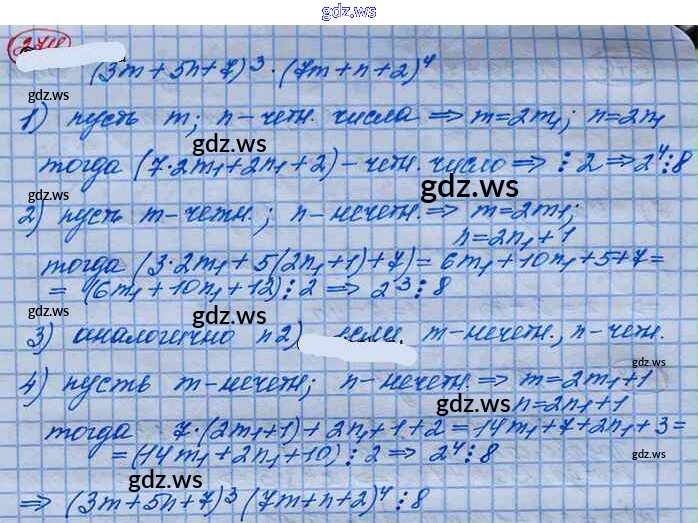 gdz.ws
(3m+5n+7)³·(7m+n+2)⁴
gdz.ws
1) пусть m; n-четн. числа ⇒ m=2m₁; n=2n₁
gdz.ws
тогда (7·2m₁+2n₁+2) - четн. число ⇒ ⋮2 ⇒ 2⁴⋮8
gdz.ws
gdz.ws
2) пусть m-четн.; n-нечетн. ⇒ m=2m₁;
n=2n₁+1
тогда (3·2m₁+5(2n₁+1)+7)=6m₁+10n₁+5+7=
=(6m₁+10n₁+12)⋮2 ⇒ 2³⋮8
gdz.ws
gdz.ws
3) аналогично п2) если m-нечетн., n-четн.
gdz.ws
4) пусть m-нечетн; n-нечетн. ⇒ m=2m₁+1
gdz.ws
n=2n₁+1
тогда 7·(2m₁+1)+2n₁+1+2=14m₁+7+2n₁+3=
=(14m₁+2n₁+10)⋮2 ⇒ 2⁴⋮8
gdz.ws
gdz.ws
⇒ (3m+5n+7)³(7m+n+2)⁴⋮8
gdz.ws